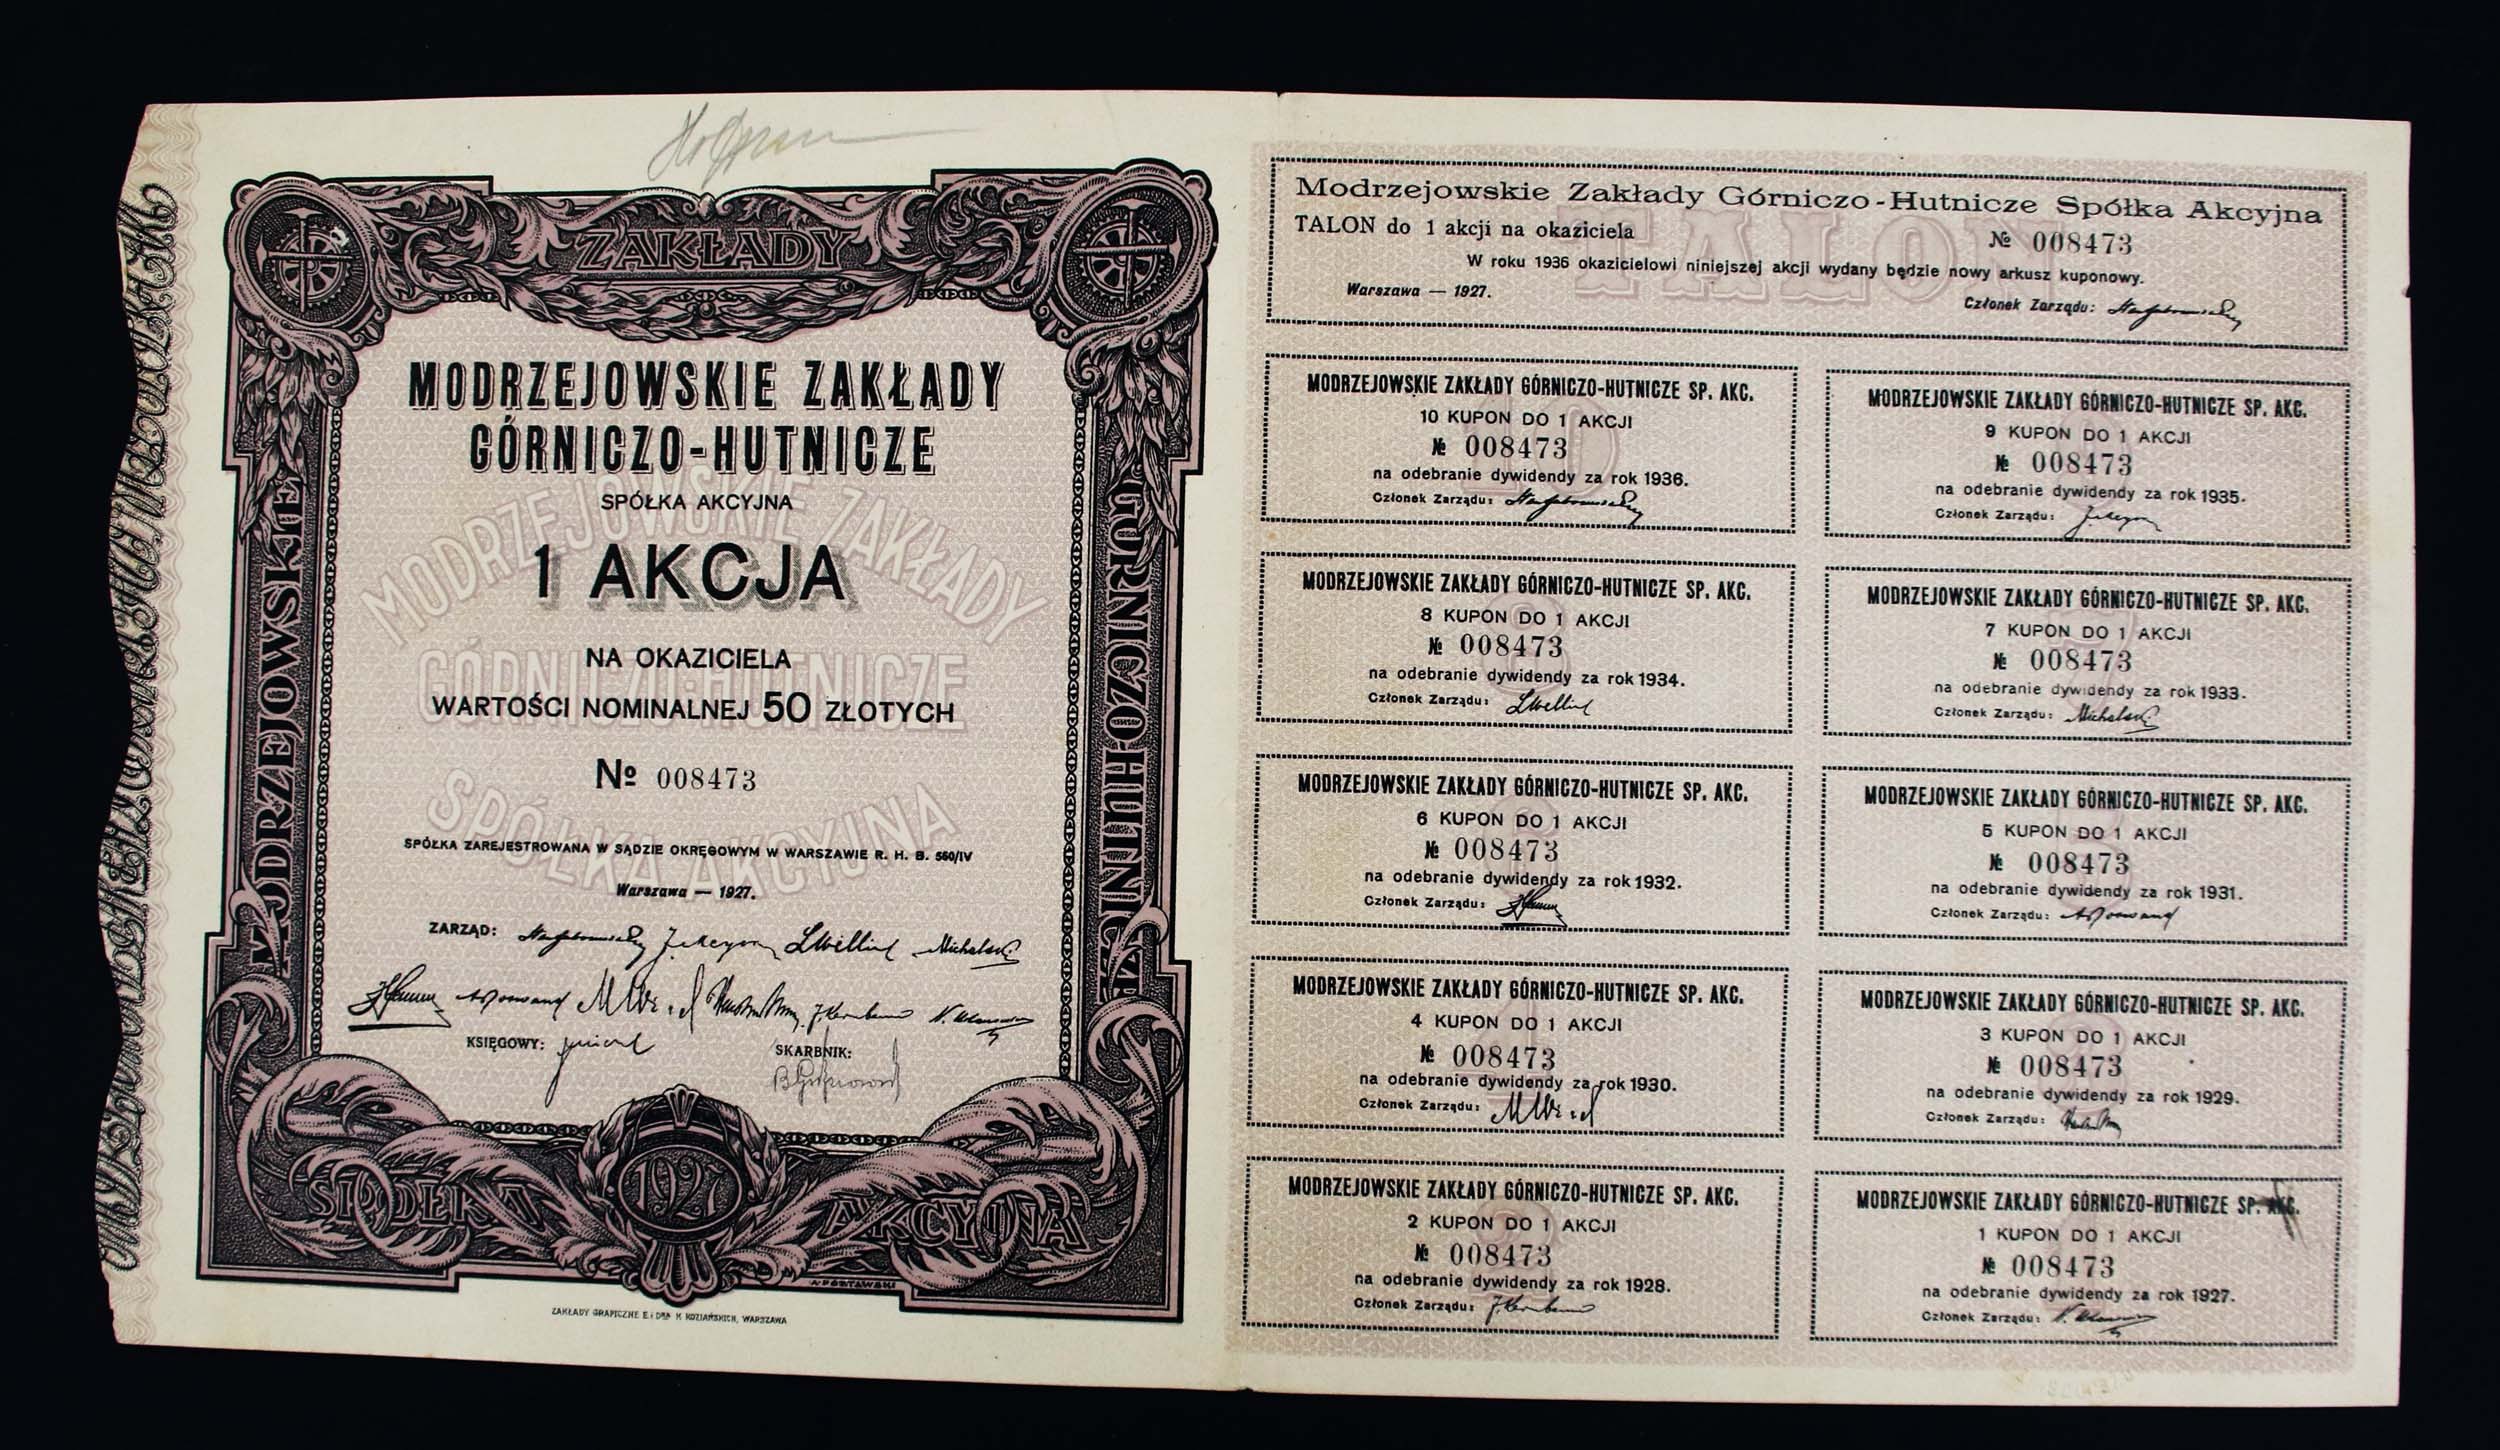 ZAKŁADY
MODRZEJOWSKIE
GÓRNICZO-HUTNICZE
MODRZEJOWSKIE ZAKŁADY
GÓRNICZO-HUTNICZE
SPÓŁKA AKCYJNA
MODRZEJOWSKIE ZAKŁADY
GÓRNICZO-HUTNICZE
SPÓŁKA AKCYJNA
1 AKCJA
NA OKAZICIELA
WARTOŚCI NOMINALNEJ 50 ZŁOTYCH
№ 008473
SPÓŁKA ZAREJESTROWANA W SĄDZIE OKRĘGOWYM W WARSZAWIE R. H. B. 550/IV
Warszawa — 1927.
ZARZĄD:
KSIĘGOWY:
SKARBNIK:
1927
SPÓŁKA AKCYJNA
ZAKŁADY GRAFICZNE E. i DRA K. KOZIAŃSKICH, WARSZAWA
TALON
Modrzejowskie Zakłady Górniczo-Hutnicze Spółka Akcyjna
TALON do 1 akcji na okaziciela
№ 008473
W roku 1936 okazicielowi niniejszej akcji wydany będzie nowy arkusz kuponowy.
Warszawa — 1927.
Członek Zarządu:
MODRZEJOWSKIE ZAKŁADY GÓRNICZO-HUTNICZE SP. AKC.
10 KUPON DO 1 AKCJI
№ 008473
na odebranie dywidendy za rok 1936.
Członek Zarządu:
MODRZEJOWSKIE ZAKŁADY GÓRNICZO-HUTNICZE SP. AKC.
9 KUPON DO 1 AKCJI
№ 008473
na odebranie dywidendy za rok 1935.
Członek Zarządu:
MODRZEJOWSKIE ZAKŁADY GÓRNICZO-HUTNICZE SP. AKC.
8 KUPON DO 1 AKCJI
№ 008473
na odebranie dywidendy za rok 1934.
Członek Zarządu:
MODRZEJOWSKIE ZAKŁADY GÓRNICZO-HUTNICZE SP. AKC.
7 KUPON DO 1 AKCJI
№ 008473
na odebranie dywidendy za rok 1933.
Członek Zarządu: Michalski
MODRZEJOWSKIE ZAKŁADY GÓRNICZO-HUTNICZE SP. AKC.
6 KUPON DO 1 AKCJI
№ 008473
na odebranie dywidendy za rok 1932.
Członek Zarządu:
MODRZEJOWSKIE ZAKŁADY GÓRNICZO-HUTNICZE SP. AKC.
5 KUPON DO 1 AKCJI
№ 008473
na odebranie dywidendy za rok 1931.
Członek Zarządu:
MODRZEJOWSKIE ZAKŁADY GÓRNICZO-HUTNICZE SP. AKC.
4 KUPON DO 1 AKCJI
№ 008473
na odebranie dywidendy za rok 1930.
Członek Zarządu:
MODRZEJOWSKIE ZAKŁADY GÓRNICZO-HUTNICZE SP. AKC.
3 KUPON DO 1 AKCJI
№ 008473
na odebranie dywidendy za rok 1929.
Członek Zarządu:
MODRZEJOWSKIE ZAKŁADY GÓRNICZO-HUTNICZE SP. AKC.
2 KUPON DO 1 AKCJI
№ 008473
na odebranie dywidendy za rok 1928.
Członek Zarządu:
MODRZEJOWSKIE ZAKŁADY GÓRNICZO-HUTNICZE SP. AKC.
1 KUPON DO 1 AKCJI
№ 008473
na odebranie dywidendy za rok 1927.
Członek Zarządu: